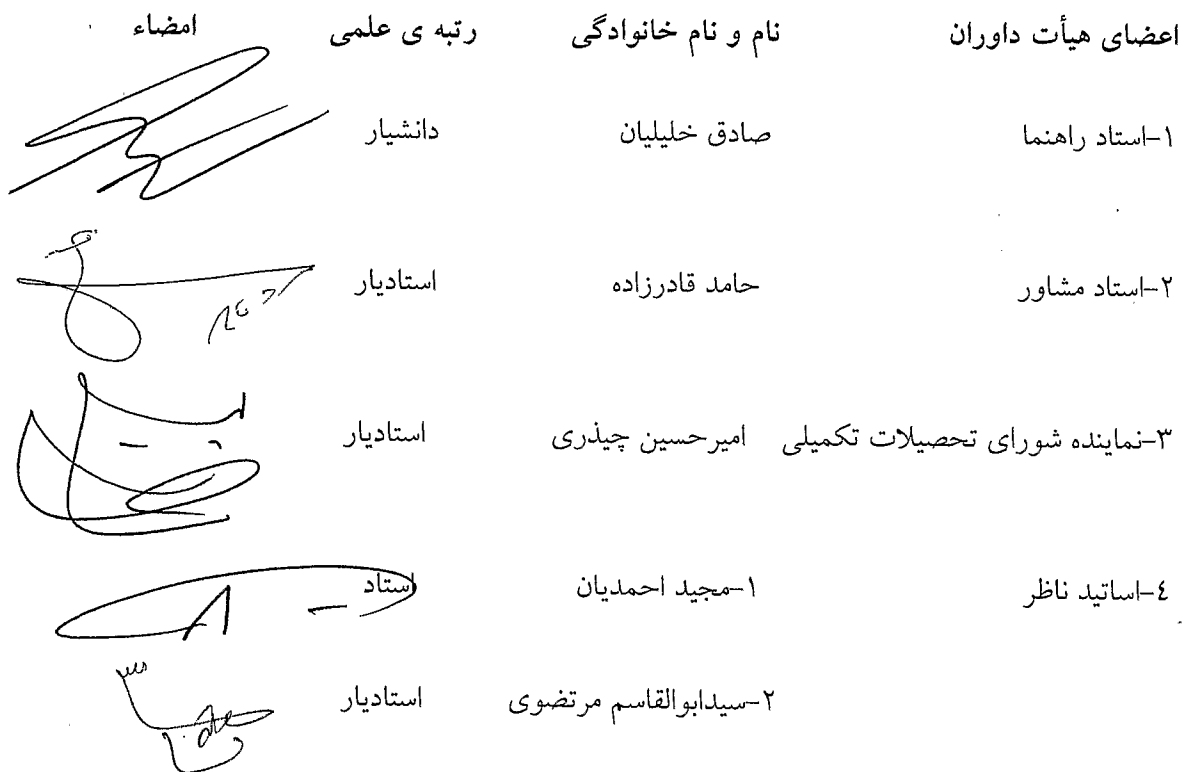 اعضای هیأت داوران نام و نام خانوادگی رتبه ی علمی امضاء
۱-استاد راهنما صادق خلیلیان دانشیار
۲-استاد مشاور حامد قادرزاده استادیار
۳-نماینده شورای تحصیلات تکمیلی امیرحسین چیذری استادیار
٤-اساتید ناظر ۱-مجید احمدیان استاد
۲-سیدابوالقاسم مرتضوی استادیار